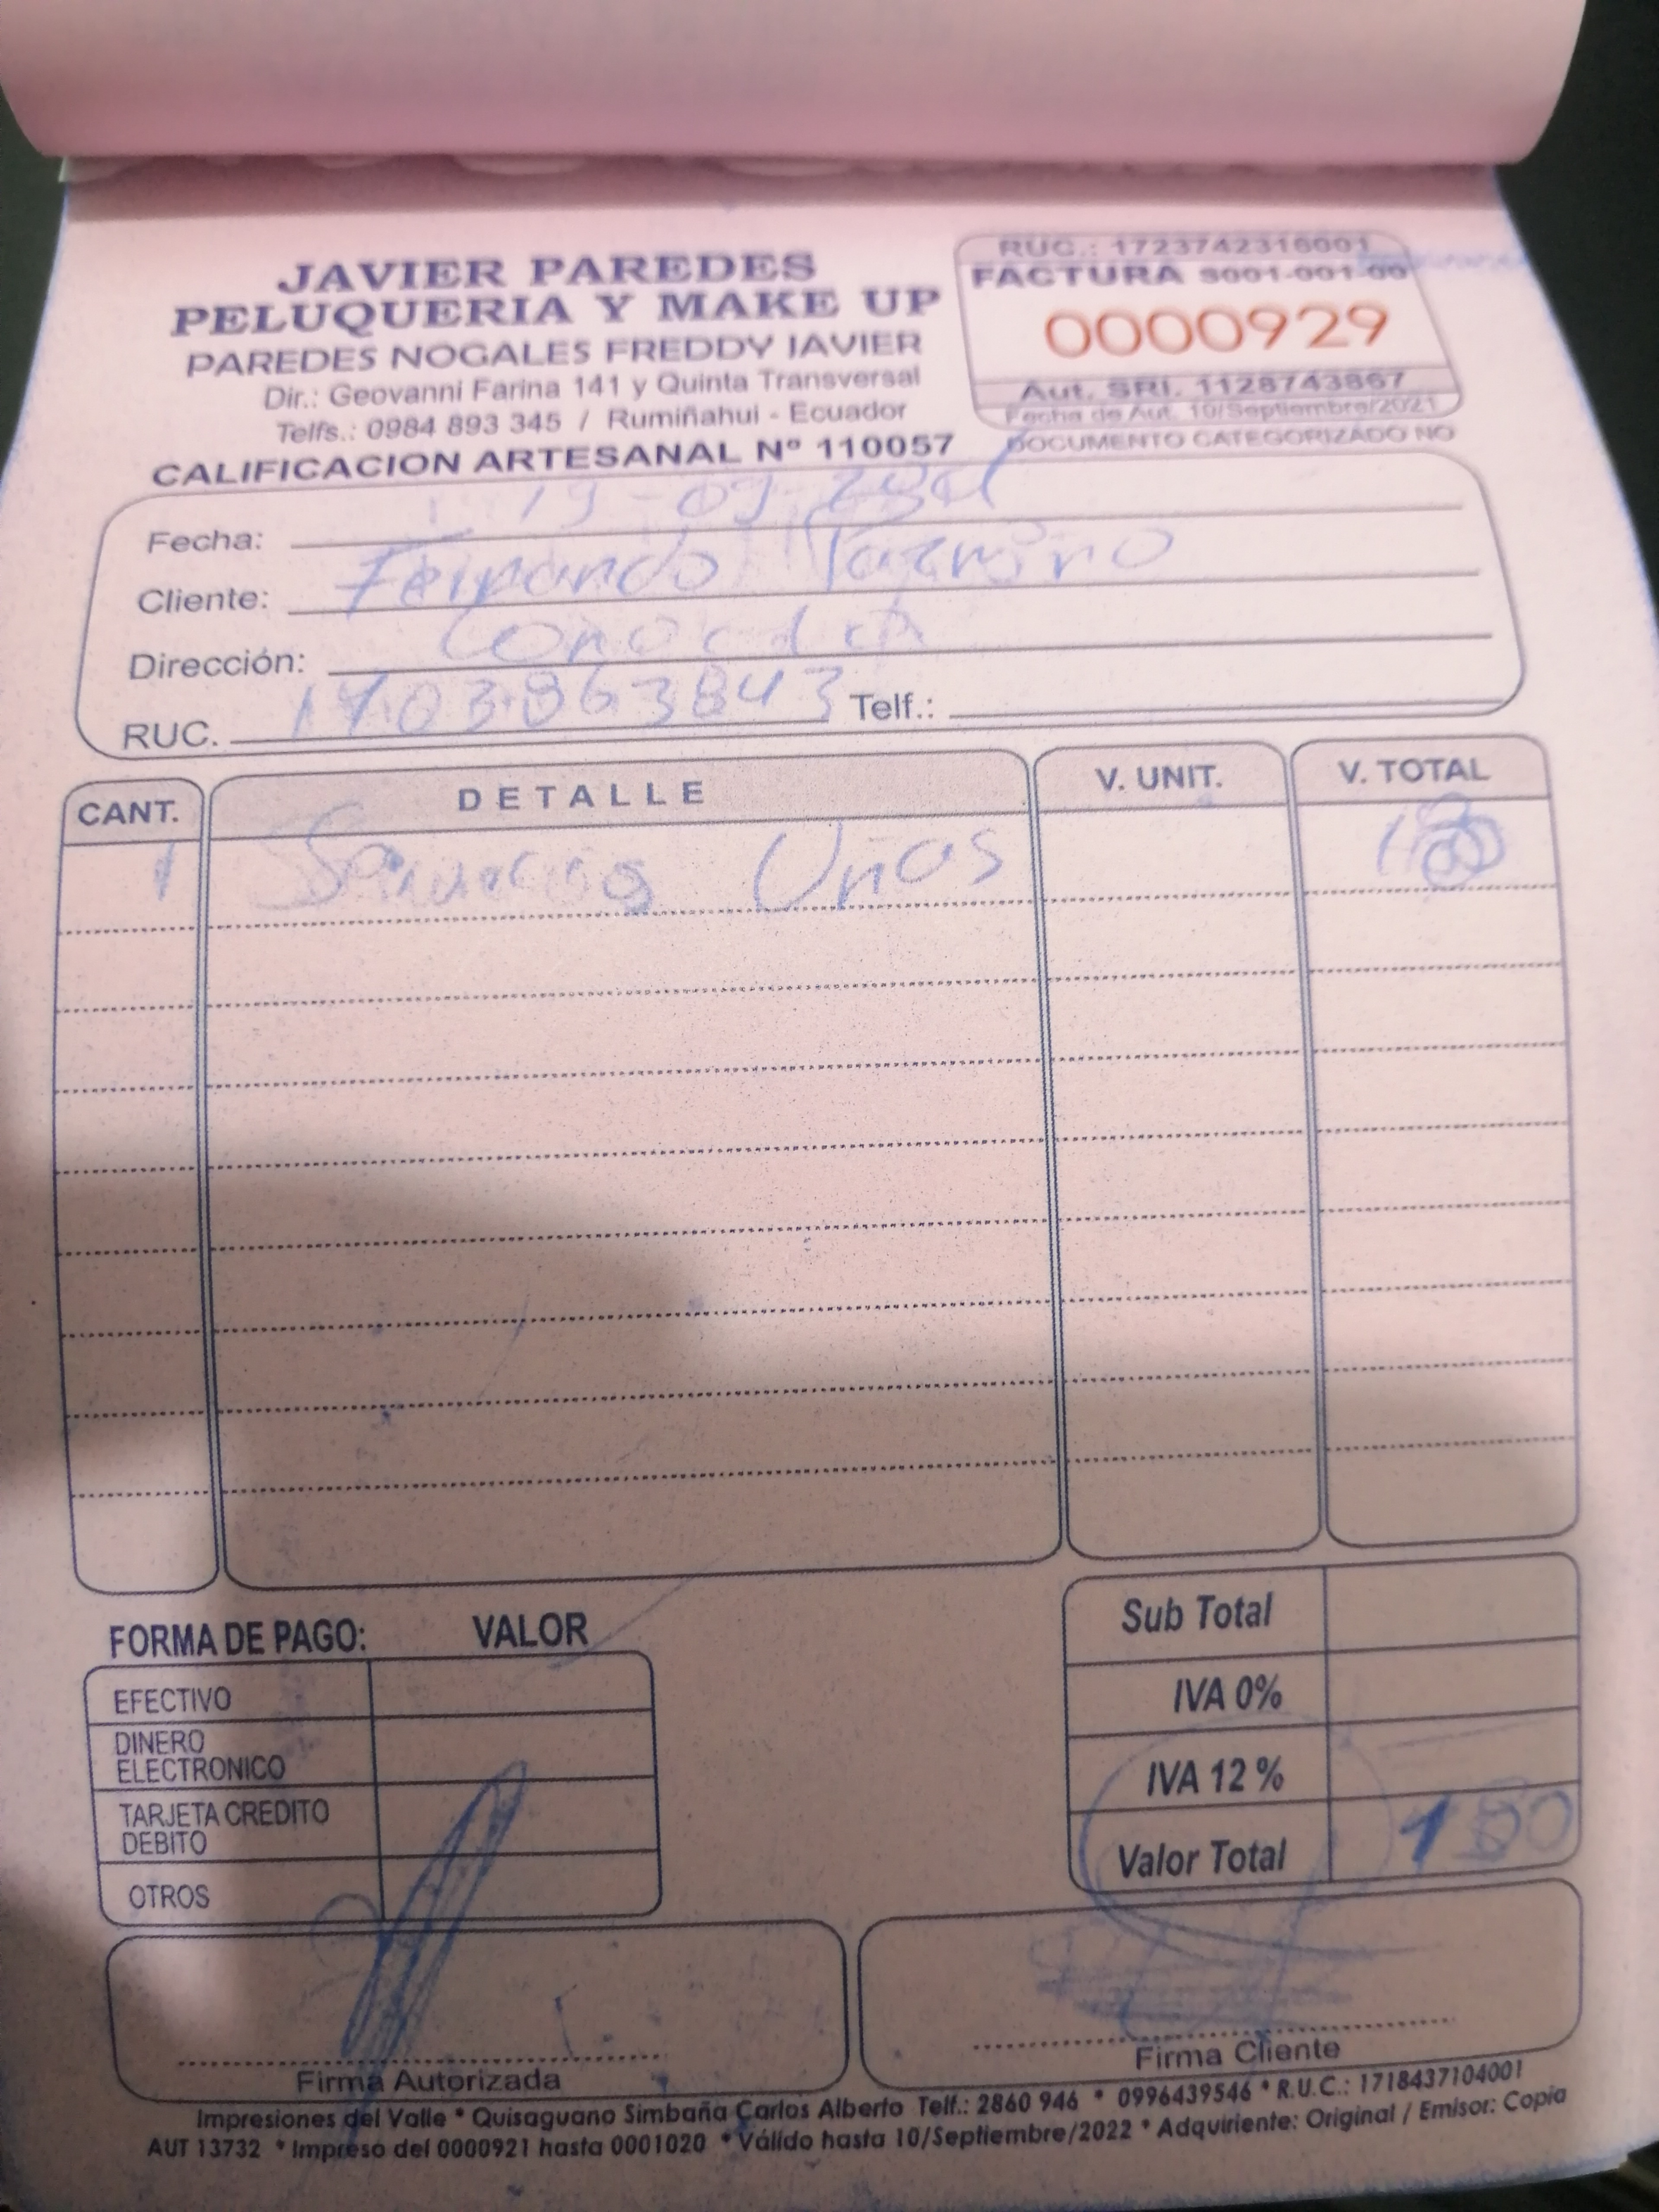 JAVIER PAREDES
PELUQUERIA Y MAKE UP
PAREDES NOGALES FREDDY JAVIER
Dir.: Geovanni Farina 141 y Quinta Transversal
Telfs.: 0984 893 345 / Rumiñahui - Ecuador
CALIFICACION ARTESANAL Nº 110057
RUC.: 1723742316001
FACTURA S001-001-00
0000929
Aut. SRI. 1128743867
Fecha de Aut. 10/Septiembre/2021
DOCUMENTO CATEGORIZADO NO
Fecha: 19-09-
Cliente: Fernando
Dirección:
RUC. 1703863843 Telf.:
CANT. DETALLE V. UNIT. V. TOTAL
1 Uñas
FORMA DE PAGO: VALOR
EFECTIVO
DINERO
ELECTRONICO
TARJETA CREDITO
DEBITO
OTROS
Sub Total
IVA 0%
IVA 12 %
Valor Total
Firma Autorizada
Firma Cliente
Impresiones del Valle * Quisaguano Simbaña Carlos Alberto Telf.: 2860 946 * 0996439546 * R.U.C.: 1718437104001
AUT 13732 * Impreso del 0000921 hasta 0001020 * Válido hasta 10/Septiembre/2022 * Adquiriente: Original / Emisor: Copia